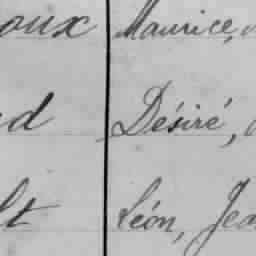 oux Maurice,
d Désiré,
lt Léon, Jea